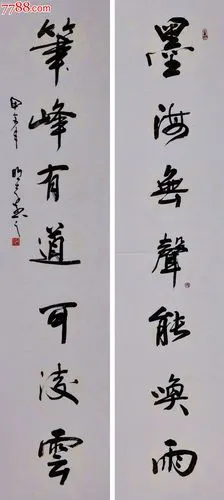 7788.com
墨海無聲能喚雨
筆峰有道可凌雲